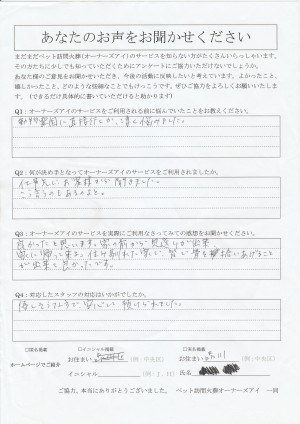 あなたのお声をお聞かせください
まだまだペット訪問火葬(オーナーズアイ)のサービスを知らない方がたくさんいらっしゃいます。
その方たちに少しでも知っていただくためにアンケートにご協力いただけないでしょうか。
あなた様のご意見をお聞かせいただき、今後の活動に反映したいと考えています。よかったこと、
嬉しかったこと、どのような些細なことでもけっこうです。ぜひご協力をよろしくお願いいたし
ます。(できるだけ具体的に書いていただけると助かります)
Q1:オーナーズアイのサービスをご利用される前に悩んでいたことをお教えください。
動物霊園に直接行くか、凄く悩みました。
Q2:何が決め手となってオーナーズアイのサービスをご利用されましたか。
仕事先に、お客様から聞きました。
こう言うのもあるのよと。
Q3:オーナーズアイのサービスを実際にご利用なさってみての感想をお聞かせください。
良かったと思います。家の前から見送りが出来、
家に帰って来る。住み慣れた家で、皆で骨を拾いあげること
が出来て良かったです。
Q4:対応したスタッフの対応はいかがでしたか。
優しそうな方で、安心して預けられました。
□匿名掲載
□イニシャル掲載
□実名掲載
ホームページでご紹介
お住まい
(例:中央区)
お住まい
(例:中央区)
イニシャル
(例:J.H)
氏名
ご協力、本当にありがとうございました。 ペット訪問火葬オーナーズアイ 一同